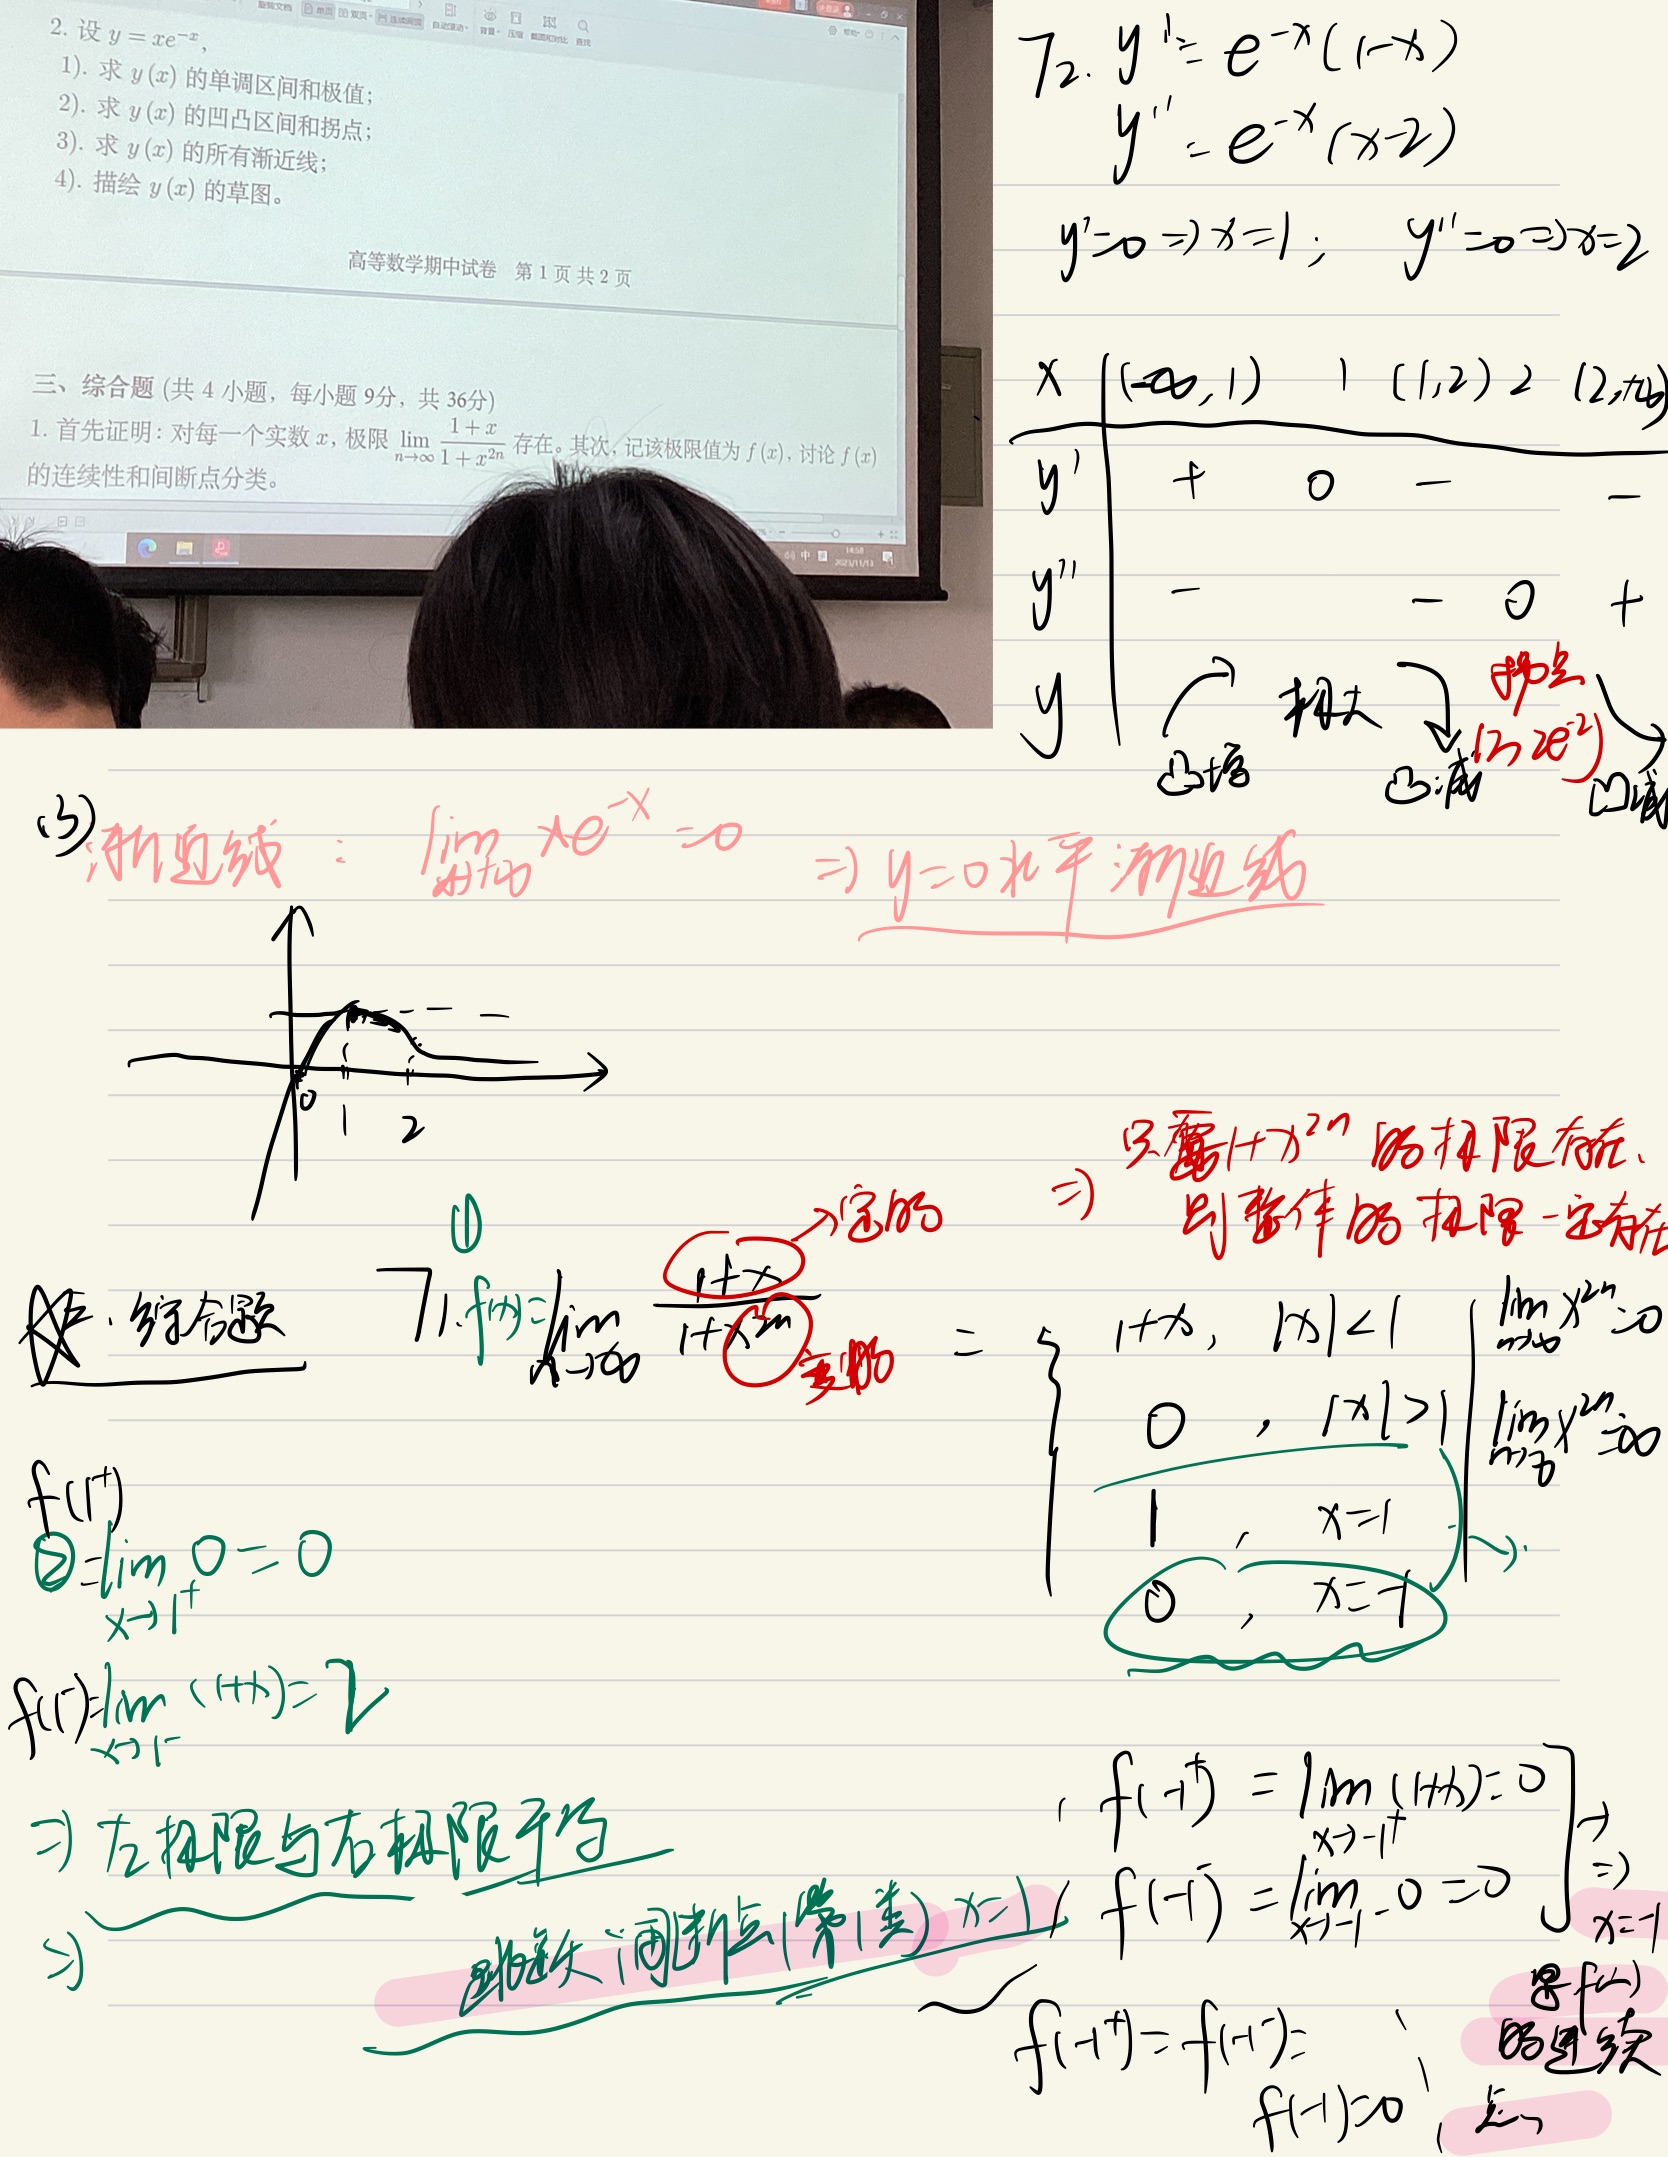 2. 设 y = xe^{-x},
1). 求 y(x) 的单调区间和极值;
2). 求 y(x) 的凹凸区间和拐点;
3). 求 y(x) 的所有渐近线;
4). 描绘 y(x) 的草图。
高等数学期中试卷 第 1 页 共 2 页
三、综合题 (共 4 小题, 每小题 9分, 共 36分)
1. 首先证明: 对每一个实数 x, 极限 lim_{n→∞} (1+x)/(1+x^{2n}) 存在。其次, 记该极限值为 f(x), 讨论 f(x)
的连续性和间断点分类。
14:58
2023/11/13
72. y' = e^{-x}(1-x)
y'' = e^{-x}(x-2)
y'=0 => x=1; y''=0 => x=2
x (-∞,1) 1 (1,2) 2 (2,+∞)
y' + 0 - -
y'' - - 0 +
y 极大 拐点
(2, 2e^{-2})
凸增 凸减 凹减
(3) 渐近线: lim_{x→+∞} xe^{-x} = 0 => y=0 水平渐近线
0 1 2
=> 只需1+x^{2n} 的极限存在,
则整体的极限一定存在
① →定的
综合题 71. f(x)= lim_{n→∞} (1+x)/(1+x^{2n}) 变的 = { 1+x, |x|<1 lim_{n→∞} x^{2n}=0
0, |x|>1 lim_{n→∞} x^{2n}=∞
1, x=1
0, x=-1
f(1^+)
② = lim_{x→1^+} 0 = 0
f(1^-)= lim_{x→1^-} (1+x) = 2
=> 左极限与右极限不等
=> 跳跃间断点(第1类) x=1
f(-1^+) = lim_{x→-1^+} (1+x) = 0
f(-1^-) = lim_{x→-1^-} 0 = 0
=> x=-1
是f(x)
的连续
点
f(-1^+) = f(-1^-) =
f(-1)=0